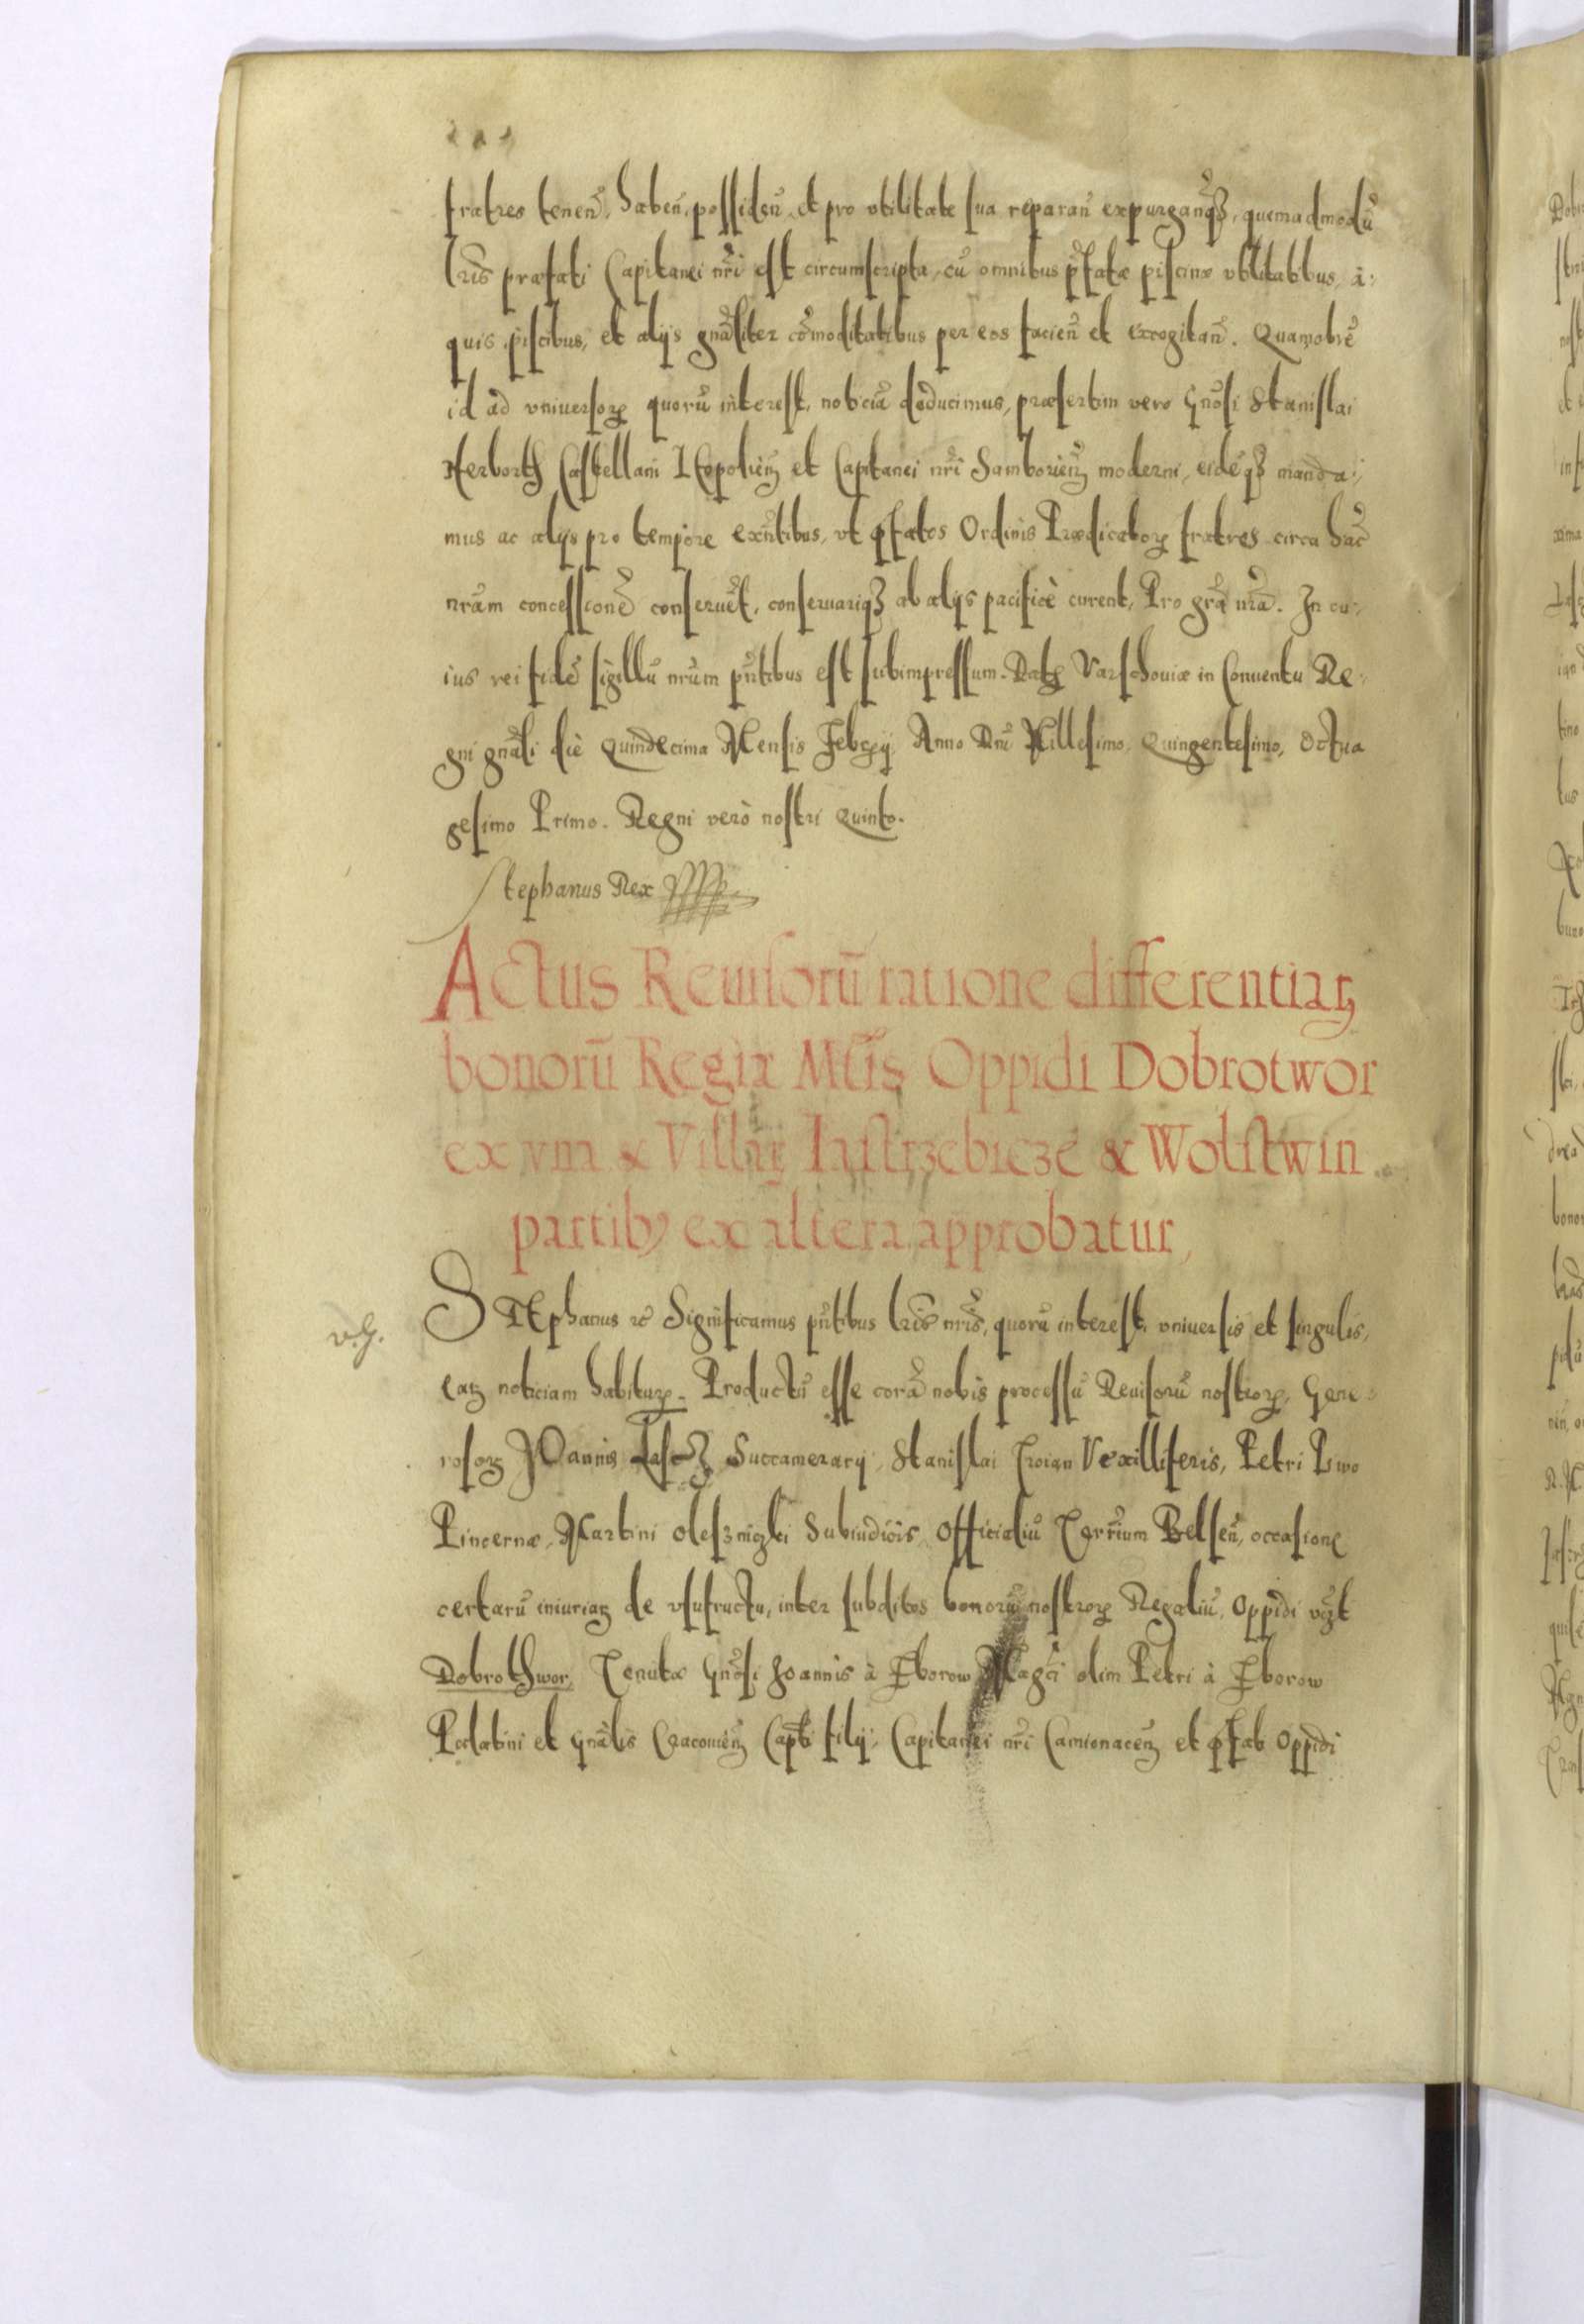 fratres tenen̄, haben̄, possiden̄, et pro vtilitate sua reparan̄ expurgan̄qꝫ, quemadmodū
lr̄is præfati Capitanei nr̄i est circumscripta, cū omnibus p̄fatæ piscinæ vtilitatibus, a:
quis piscibus, et alijs gn̄aliter cōmoditatibus per eos facien̄ et excogitan̄. Quamobrē
id ad vniuersoꝝ quorū interest, noticiā deducimus, præsertim vero Gn̄osi Stanislai
Herborth Castellani Leopolien̄ et Capitanei nr̄i Samborien̄ moderni, eideqꝫ manda:
mus ac alijs pro tempore exn̄tibus, vt p̄fatos Ordinis Prædicatoꝝ fratres circa hāc
nr̄am concessionē conseruēt, conseruariqꝫ ab alijs pacificè curent, Pro gr̄a nr̄a. In cu:
ius rei fidē sigillū nr̄um pn̄tibus est subimpressum. Datꝫ Varschouiæ in Conuentu Re:
gni gn̄ali die Quindecima Mensis Febrꝫij, Anno Dn̄i Millesimo, Quingentesimo, Octua
gesimo Primo. Regni verò nostri Quinto.
Stephanus Rex
Actus Reuisorū ratione differentiaꝝ
bonorū Regiæ Mt̄is Oppidi Dobrotwor
ex vna & Villaꝝ Iastrzebicze & Wolstwin
partibꝰ ex altera approbatur,
STEphanus ꝛc Significamus pn̄tibus lr̄is nr̄is, quorū interest, vniuersis et singulis,
eaꝝ noticiam habituꝝ. Productū esse corā nobis processū Reuisorū nostroꝝ, Gene
rosoꝝ Joannis Succamerarij, Stanislai Vexilliferis, Petri Piwo
Pincernæ, Martini Oleszniczki Subiudicis, Officialiū Terrīum Belsen̄, occasione
certarū iniuriaꝝ de vsufructu, inter subditos bonorū nostroꝝ Regaliū, Oppidi vcꝫt
Dobrothwor, Tenutæ Gn̄osi Joannis à Zborow Magci olim Petri à Zborow
Palatini et Gn̄alis Cracouien̄ Capti filij, Capitanei nr̄i Camionacen̄ et p̄fati Oppidi